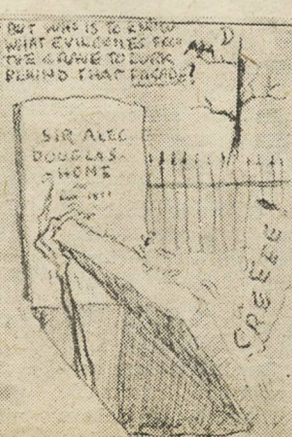 BUT WHO IS TO KNOW
WHAT EVIL COMES FROM
THE GRAVE TO LURK
BEHIND THAT FACADE?
SIR ALEC
DOUGLAS-
HOME
CREEEE!